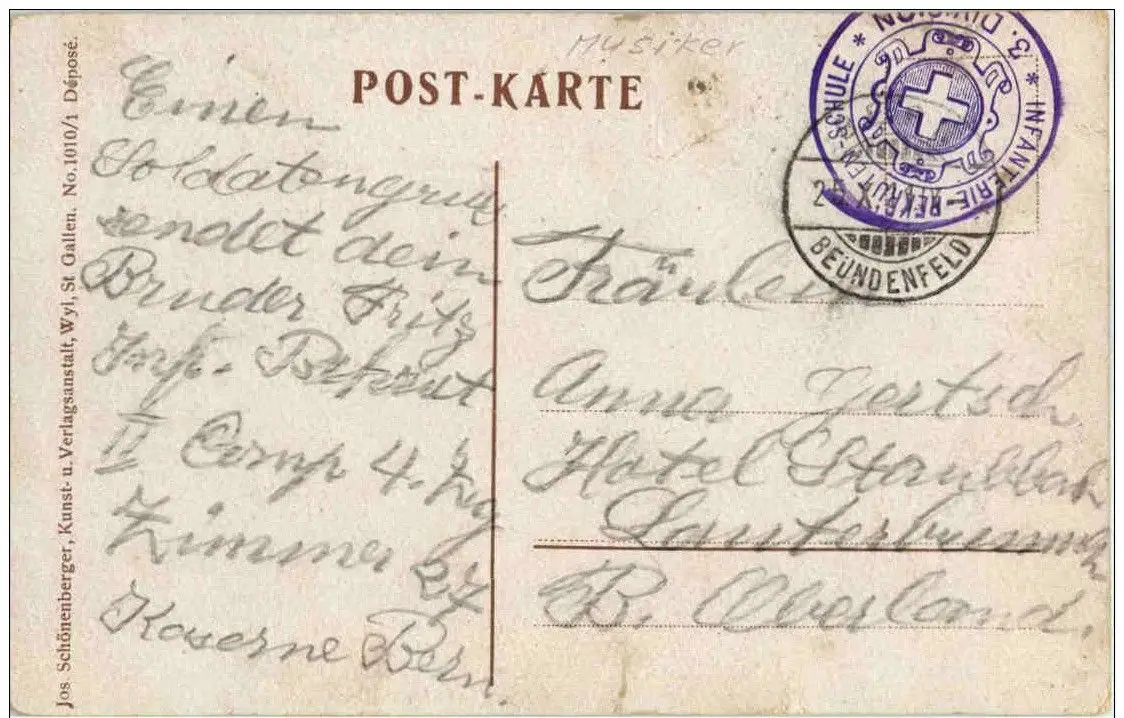 Musiker
POST-KARTE
3. DIVISION * INFANTERIE-REKRUTEN-SCHULE *
BEUNDENFELD
Einen
Soldatengruss
sendet dein
Bruder Fritz
Inf. Rekrut
II Comp 4. Zug
Zimmer 27
Kaserne Bern.
Fräulein
Anna Gertsch
Hotel Staubbach
Lauterbrunnen
B. Oberland.
Jos Schönenberger, Kunst- u. Verlagsanstalt, Wyl, St Gallen. No. 1010/1 Déposé.